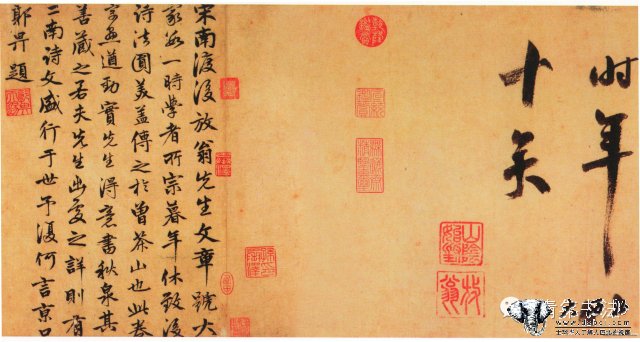 时年
十矣
山陰始封
放翁
宋南渡後放翁先生文章號大
家數一時學者所宗暮年休致後
詩法圓美蓋傳之於曾茶山也此卷
字畫遒勁實先生得意書秋泉其
善藏之若夫先生出處之詳則有
二南诗文盛行于世予復何言京口
郭畀題